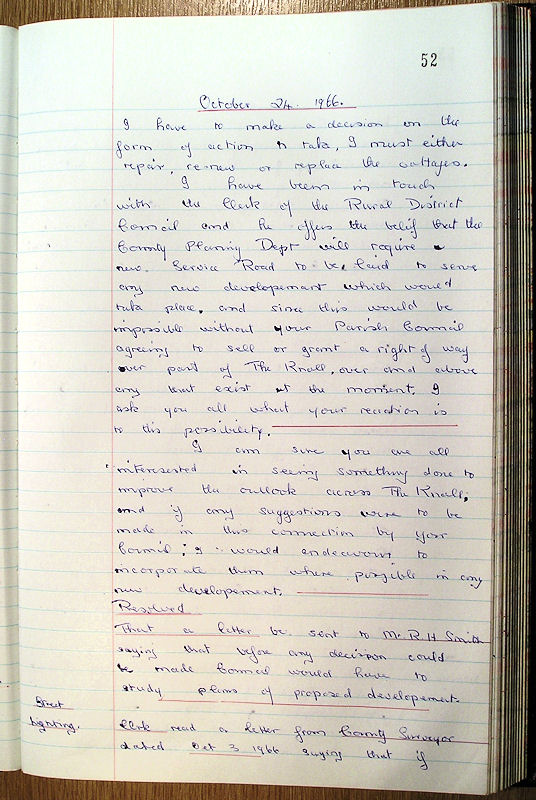 52
October 24. 1966.
I have to make a decision on the
form of action to take, I must either
repair, re-new or replace the cottages.
I have been in touch
with the Clerk of the Rural District
Council and he offers the belief that the
County Planning Dept will require a
new Service Road to be laid to serve
any new developement which would
take place, and since this would be
impossible without your Parish Council
agreeing to sell or grant a right of way
over part of The Knall, over and above
any that exist at the moment. I
ask you all what your reaction is
to this possibility.
I am sure you are all
interested in seeing something done to
improve the outlook across The Knall,
and if any suggestions were to be
made in this connection by your
Council, I would endeavour to
incorporate them where possible in any
new developement.
Resolved
That a letter be sent to Mr R H Smith
saying that before any decision could
be made Council would have to
study plans of proposed developement.
Street
Lighting.
Clerk read a letter from County Surveyor
dated Oct 3 1966 saying that if